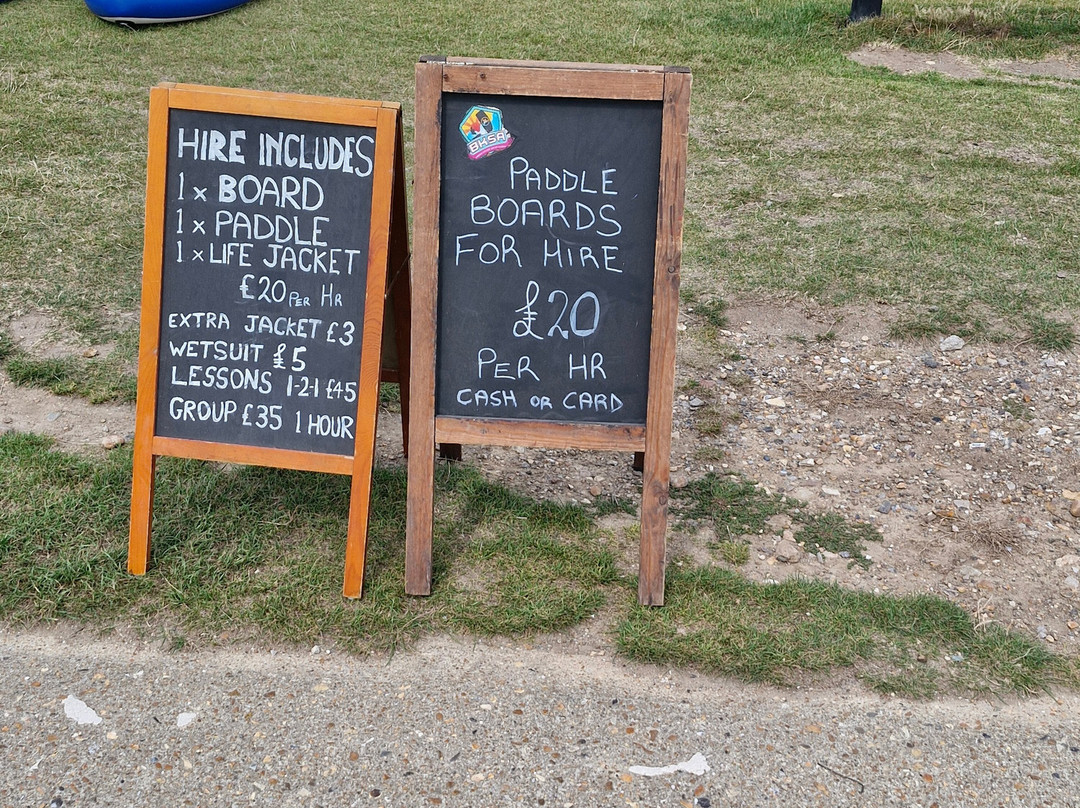 HIRE INCLUDES
1 x BOARD
1 x PADDLE
1 x LIFE JACKET
£20 PER HR
EXTRA JACKET £3
WETSUIT £5
LESSONS 1-2-1 £45
GROUP £35 1 HOUR
BKSA
PADDLE
BOARDS
FOR HIRE
£20
PER HR
CASH OR CARD